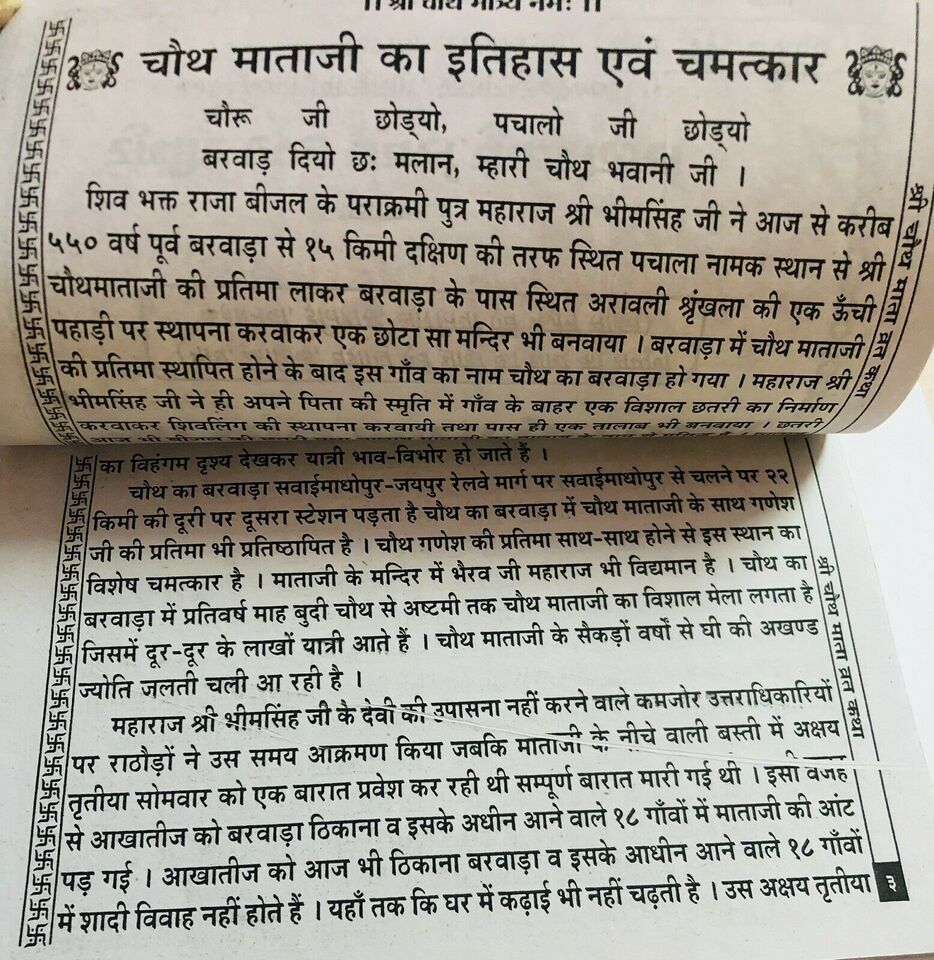 ।। श्री चौथ मात्र्य नमः ।।
चौथ माताजी का इतिहास एवं चमत्कार
चौरू जी छोड्यो, पचालो जी छोड्यो
बरवाड़ दियो छः मलान, म्हारी चौथ भवानी जी ।
शिव भक्त राजा बीजल के पराक्रमी पुत्र महाराज श्री भीमसिंह जी ने आज से करीब
५५० वर्ष पूर्व बरवाड़ा से १५ किमी दक्षिण की तरफ स्थित पचाला नामक स्थान से श्री
चौथमाताजी की प्रतिमा लाकर बरवाड़ा के पास स्थित अरावली श्रृंखला की एक ऊँची
पहाड़ी पर स्थापना करवाकर एक छोटा सा मन्दिर भी बनवाया । बरवाड़ा में चौथ माताजी
की प्रतिमा स्थापित होने के बाद इस गाँव का नाम चौथ का बरवाड़ा हो गया । महाराज श्री
भीमसिंह जी ने ही अपने पिता की स्मृति में गाँव के बाहर एक विशाल छतरी का निर्माण
करवाकर शिवलिंग की स्थापना करवायी तथा पास ही एक तालाब भी बनवाया । छतरी
श्री चौथ माता व्रत कथा
का विहंगम दृश्य देखकर यात्री भाव-विभोर हो जाते हैं ।
चौथ का बरवाड़ा सवाईमाधोपुर-जयपुर रेलवे मार्ग पर सवाईमाधोपुर से चलने पर २२
किमी की दूरी पर दूसरा स्टेशन पड़ता है चौथ का बरवाड़ा में चौथ माताजी के साथ गणेश
जी की प्रतिमा भी प्रतिष्ठापित है । चौथ गणेश की प्रतिमा साथ-साथ होने से इस स्थान का
विशेष चमत्कार है । माताजी के मन्दिर में भैरव जी महाराज भी विद्यमान है । चौथ का
बरवाड़ा में प्रतिवर्ष माह बुदी चौथ से अष्टमी तक चौथ माताजी का विशाल मेला लगता है
जिसमें दूर-दूर के लाखों यात्री आते हैं । चौथ माताजी के सैकड़ों वर्षों से घी की अखण्ड
ज्योति जलती चली आ रही है ।
महाराज श्री भीमसिंह जी कै देवी की उपासना नहीं करने वाले कमजोर उत्तराधिकारियों
पर राठौड़ों ने उस समय आक्रमण किया जबकि माताजी के नीचे वाली बस्ती में अक्षय
तृतीया सोमवार को एक बारात प्रवेश कर रही थी सम्पूर्ण बारात मारी गई थी । इसी वजह
से आखातीज को बरवाड़ा ठिकाना व इसके अधीन आने वाले १८ गाँवों में माताजी की आंट
पड़ गई । आखातीज को आज भी ठिकाना बरवाड़ा व इसके आधीन आने वाले १८ गाँवों
में शादी विवाह नहीं होते हैं । यहाँ तक कि घर में कढ़ाई भी नहीं चढ़ती है । उस अक्षय तृतीया
श्री चौथ माता व्रत कथा
३